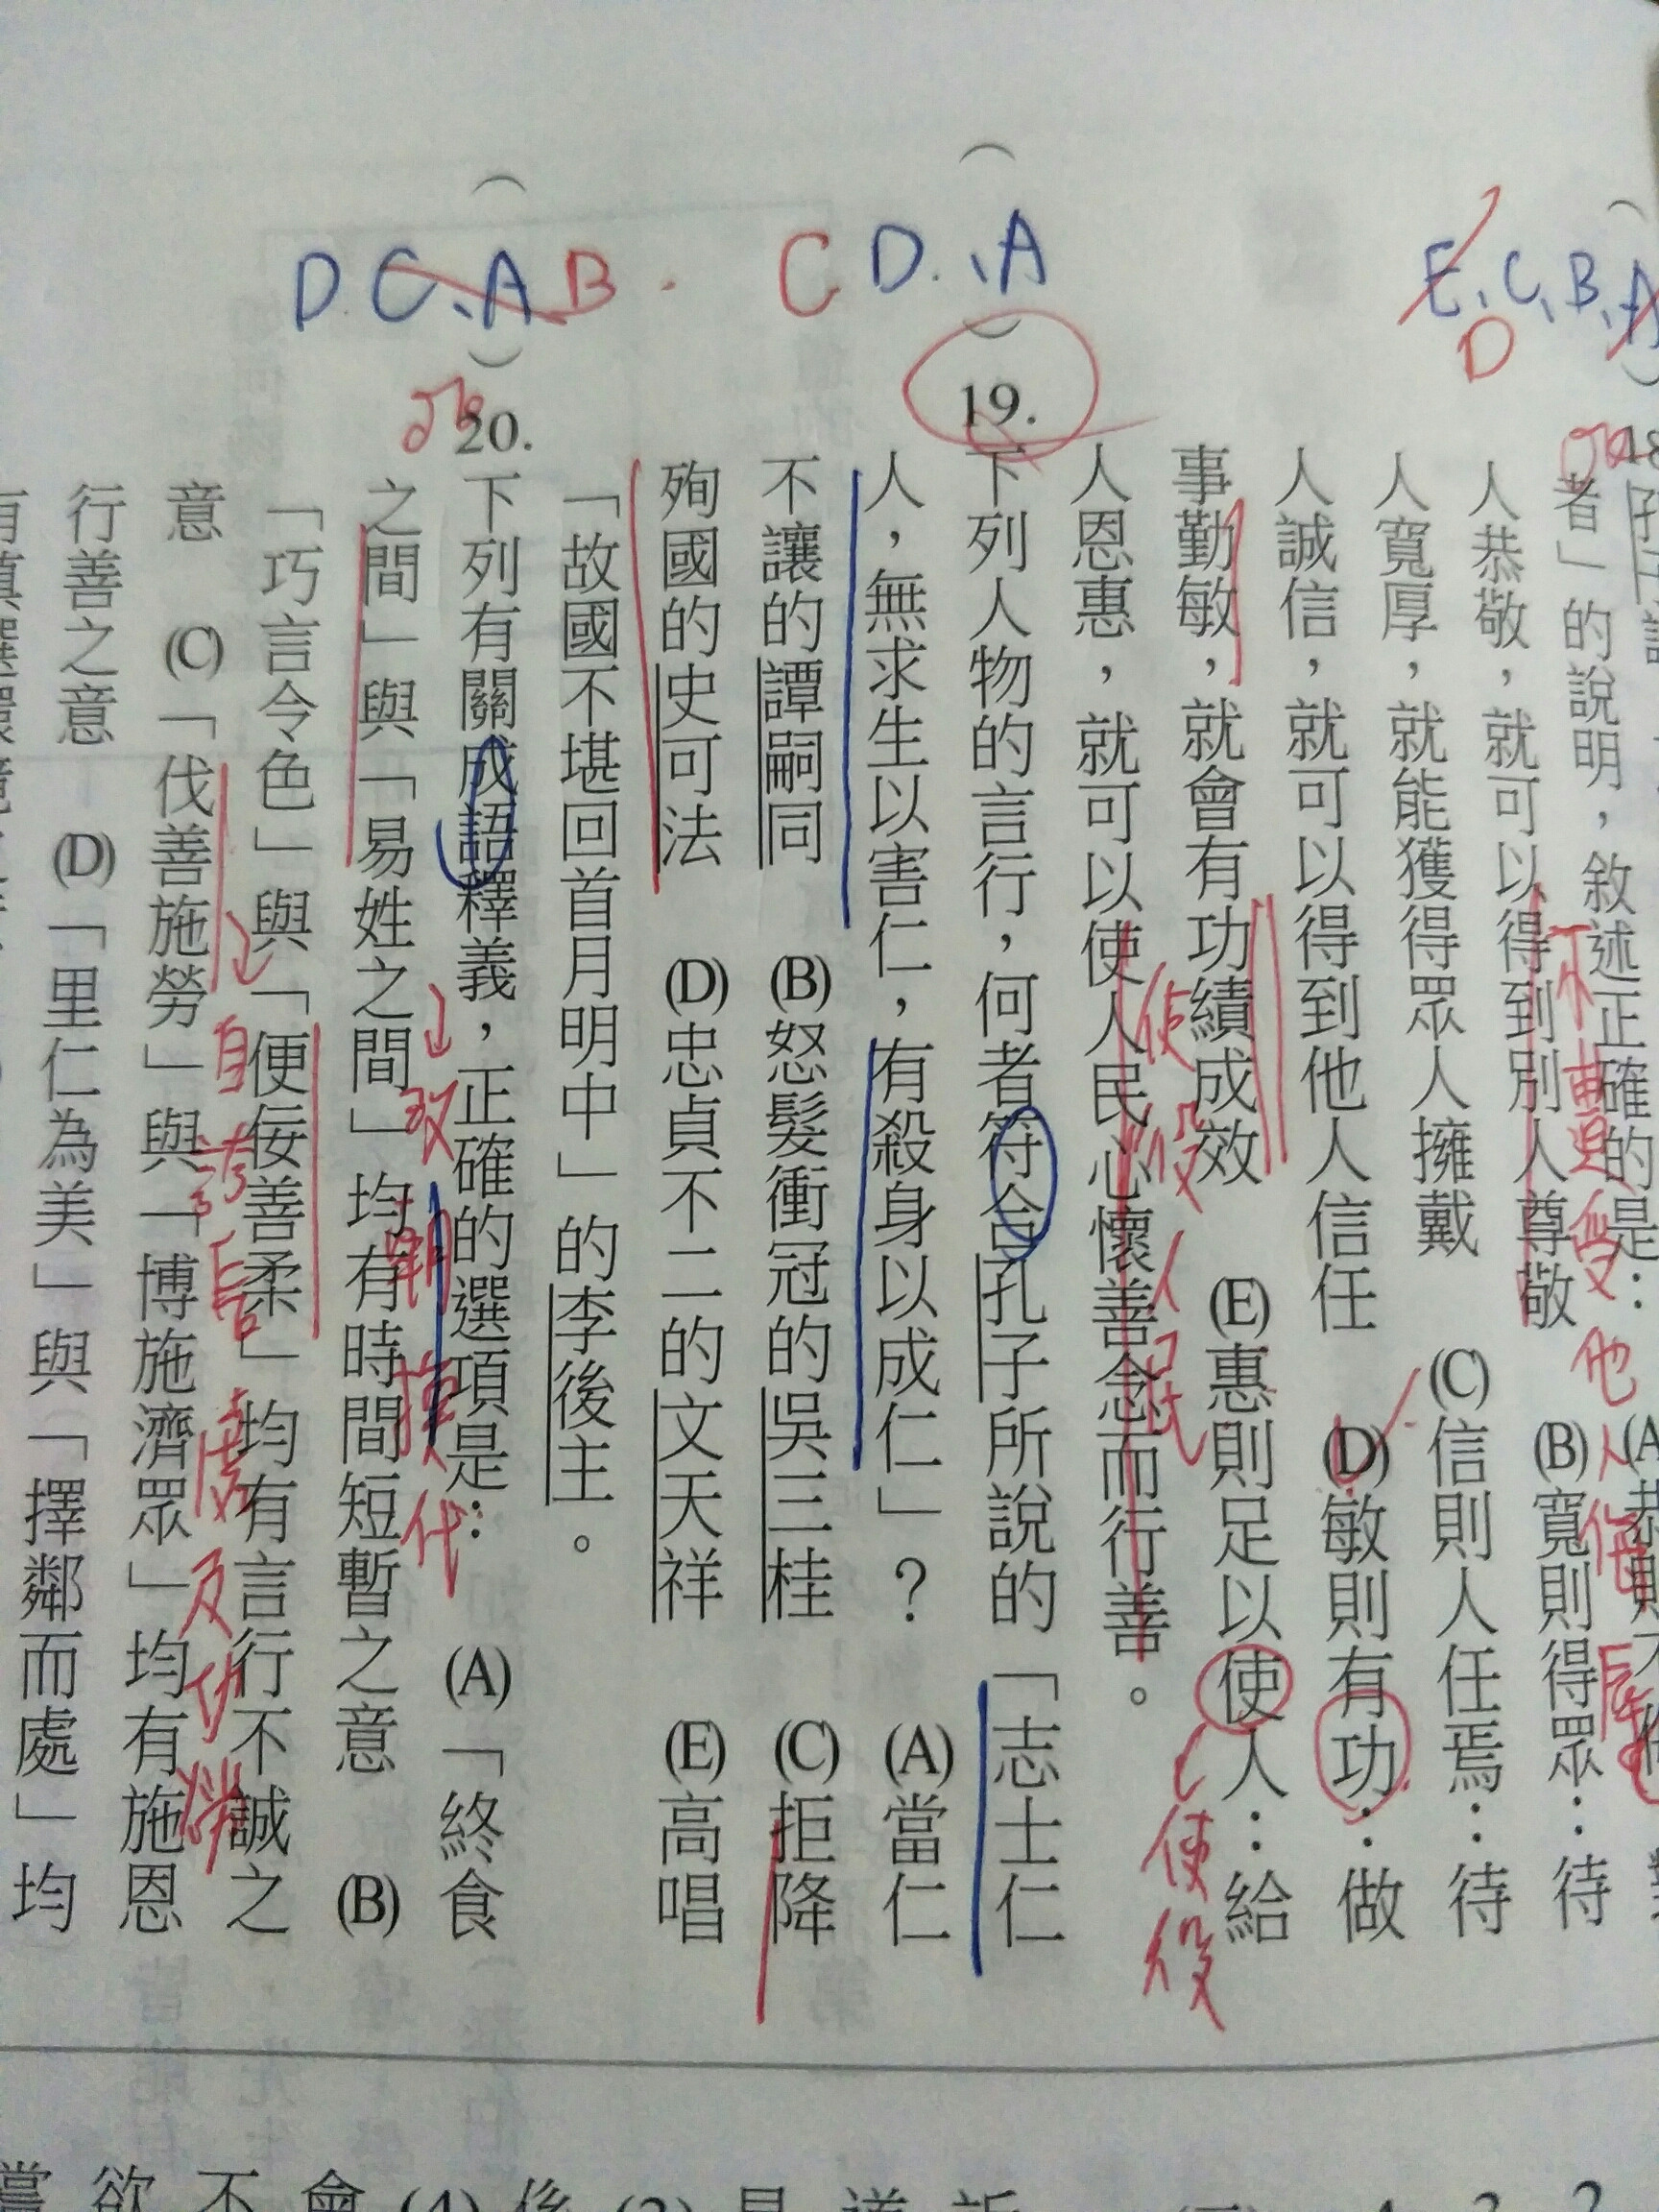 者」的說明，敘述正確的是：
人恭敬，就可以得到別人尊敬　(B)寬則得眾：待
人寬厚，就能獲得眾人擁戴　(C)信則人任焉：待
人誠信，就可以得到他人信任　(D)敏則有功：做
事勤敏，就會有功績成效　(E)惠則足以使人：給
人恩惠，就可以使人民心懷善念而行善。
E、C、B、A
D
使役人民
使役
D、A
C
19.
下列人物的言行，何者符合孔子所說的「志士仁
人，無求生以害仁，有殺身以成仁」？　(A)當仁
不讓的譚嗣同　(B)怒髮衝冠的吳三桂　(C)拒降
殉國的史可法　(D)忠貞不二的文天祥　(E)高唱
「故國不堪回首月明中」的李後主。
D.C、A B
20.
下列有關成語釋義，正確的選項是：　(A)「終食
之間」與「易姓之間」均有時間短暫之意　(B)
「巧言令色」與「便佞善柔」均有言行不誠之
意　(C)「伐善施勞」與「博施濟眾」均有施恩
行善之意　(D)「里仁為美」與「擇鄰而處」均
改朝換代